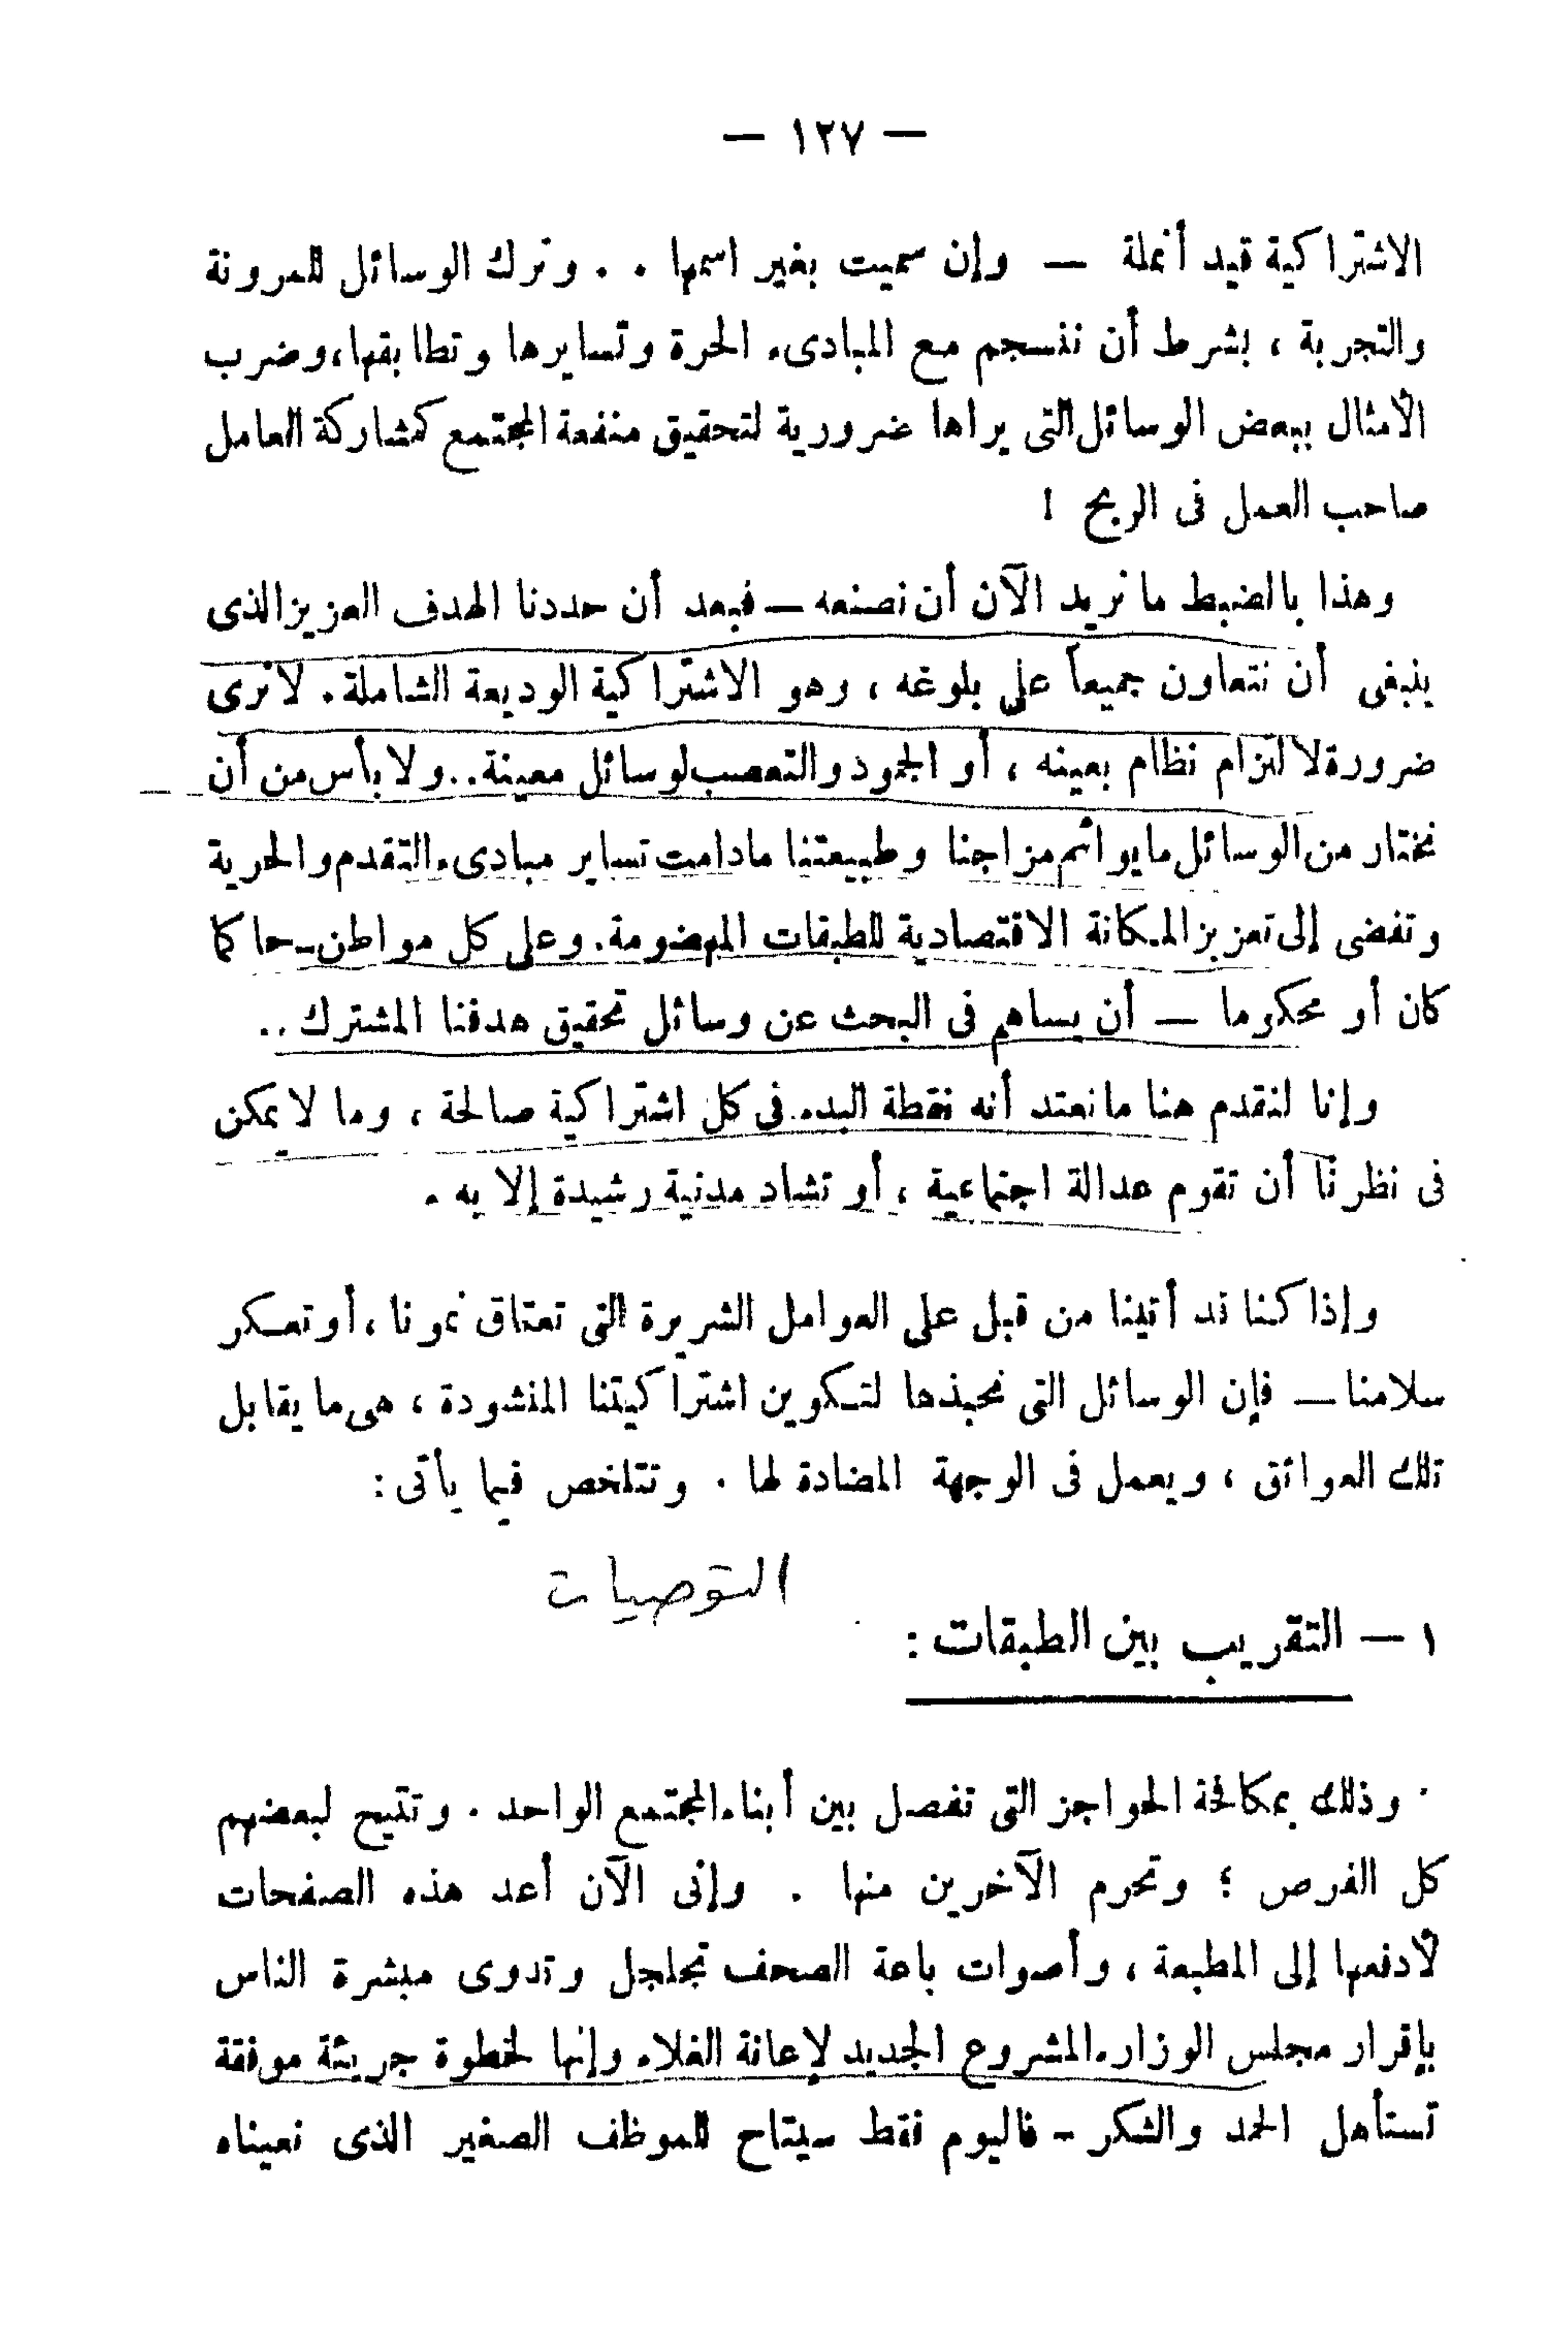 — ١٢٧ —
الاشتراكية قيد أنملة — وإن سميت بغير اسمها . . وترك الوسائل للمرونة
والتجربة ، بشرط أن تنسجم مع المبادىء الحرة وتسايرها وتطابقها، وضرب
الأمثال ببعض الوسائل التى يراها ضرورية لتحقيق منفعة المجتمع كمشاركة العامل
صاحب العمل فى الربح !
وهذا بالضبط ما نريد الآن أن نصنعه — فبعد أن حددنا الهدف العزيز الذى
ينبغى أن نتعاون جميعاً على بلوغه ، وهو الاشتراكية الوديعة الشاملة . لا نرى
ضرورة لالتزام نظام بعينه ، أو الجمود والتعصب لوسائل معينة .. ولا بأس من أن
نختار من الوسائل ما يوائم مزاجنا وطبيعتنا مادامت تساير مبادىء التقدم والحرية
وتفضى إلى تعزيز المكانة الاقتصادية للطبقات المهضومة . وعلى كل مواطن — حاكما
كان أو محكوما — أن يساهم فى البحث عن وسائل تحقيق هدفنا المشترك ..
وإنا لنقدم هنا ما نعتد أنه نقطة البدء فى كل اشتراكية صالحة ، وما لا يمكن
فى نظرنا أن تقوم عدالة اجتماعية ، أو تشاد مدنية رشيدة إلا به .
وإذا كنا قد أتينا من قبل على العوامل الشريرة التى تعتاق نمونا ، أو تعكر
سلامنا — فإن الوسائل التى نحبذها لتكوين اشتراكيتنا المنشودة ، هى ما يقابل
تلك العوائق ، ويعمل فى الوجهة المضادة لها . وتتلخص فيما يأتى :
التوصيات
١ — التقريب بين الطبقات :
وذلك بمكافحة الحواجز التى تفصل بين أبناء المجتمع الواحد . وتتيح لبعضهم
كل الفرص ؛ وتحرم الآخرين منها . وإنى الآن أعد هذه الصفحات
لأدفعها إلى المطبعة ، وأصوات باعة الصحف تجلجل وتدوى مبشرة الناس
بإقرار مجلس الوزراء المشروع الجديد لإعانة الغلاء وإنها لخطوة جريئة موفقة
تستأهل الحمد والشكر – فاليوم فقط سيتاح للموظف الصغير الذى نعيناه